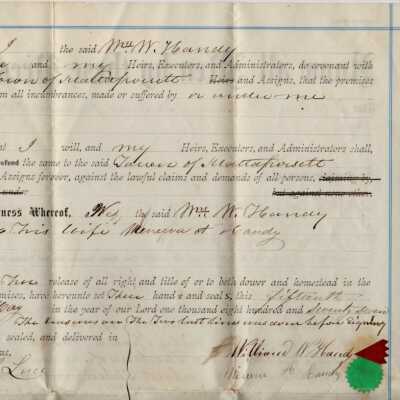 I the said Wm. W. Handy
and my Heirs, Executors, and Administrators, do covenant with
Town of Mattapoisett Heirs and Assigns, that the premises
om all incumbrances, made or suffered by or under me
t I will, and my Heirs, Executors, and Administrators shall,
the same to the said Town of Mattapoisett
Assigns forever, against the lawful claims and demands of all persons, claiming by,
under but against none other.
ness Whereof, We, the said Wm. W. Handy
his wife Minerva A Handy
release of all right and title of or to both dower and homestead in the
mises, have hereunto set Their hands and seals, this fifteenth
May in the year of our Lord one thousand eight hundred and seventy seven
The last line was before signing
sealed, and delivered in
Luce
William W Handy
Minerva A Handy